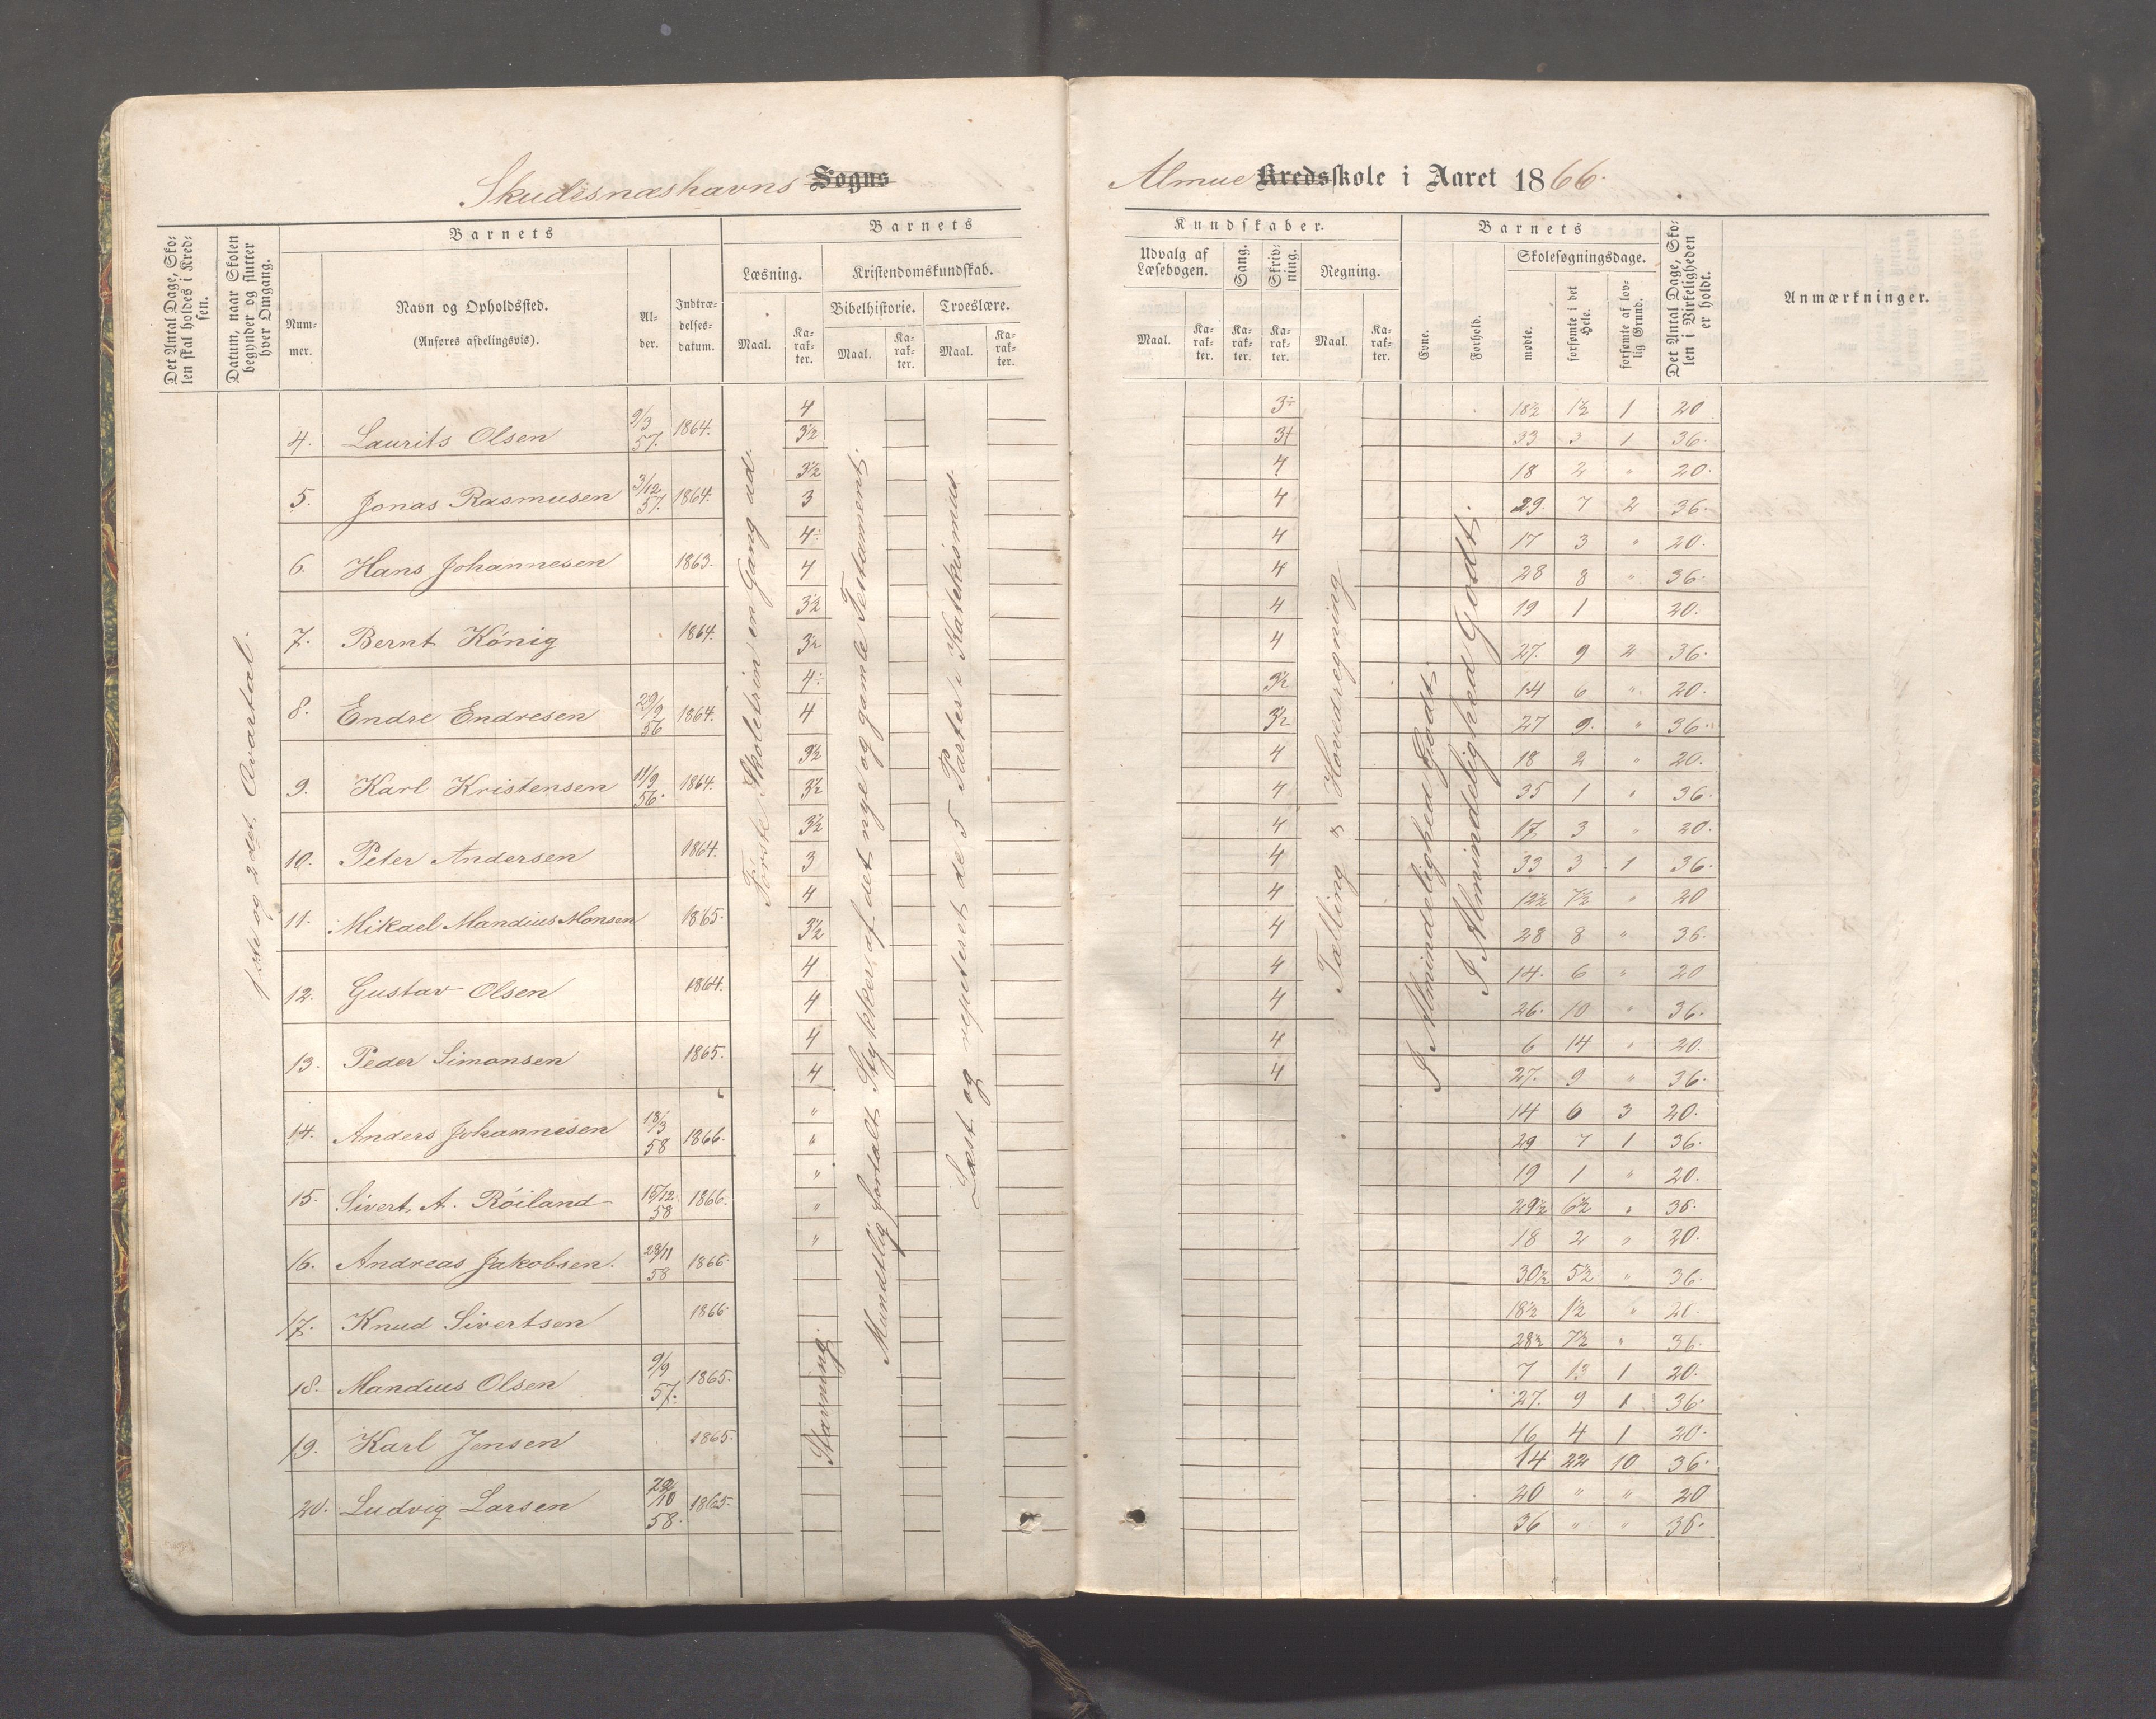 Skudesnæshavns Sogns
Almue Kredsskole i Aaret 1866.
Det Antal Dage, Skolen skal holdes i Kredsen.
Datum, naar Skolen begynder og slutter hver Omgang.
Barnets
Nummer.
Navn og Opholdssted.
(Anføres afdelingsvis).
Alder.
Indtrædelsesdatum.
Barnets
Læsning.
Maal.
Karakter.
Kristendomskundskab.
Bibelhistorie.
Maal.
Karakter.
Troeslære.
Maal.
Karakter.
Kundskaber.
Udvalg af Læsebogen.
Maal.
Karakter.
Sang.
Karakter.
Skrivning.
Karakter.
Regning.
Maal.
Karakter.
Barnets
Evne.
Forhold.
Skolesøgningsdage.
mødte.
forsømte i det Hele.
forsømte af lovlig Grund.
Det Antal Dage, Skolen i Virkeligheden er holdt.
Anmærkninger.
1ste og 2det Qvartal.
Første Skoletrin en Gang ud.
Stavning.
Mundtlig fortalt Stykker af det nye og gamle Testament.
Læst og repeteret de 5 Parter i Katekismus.
Tælling & Hovedregning
I Almindelighed Godt.
I Almindelighed Godt.
4. Laurits Olsen 9/3 57. 1864. 4 3÷ 18½ 1½ 1 20
3½ 3+ 33 3 1 36.
5. Jonas Rasmusen 3/12 57. 1864. 3½ 4 18 2 " 20.
3 4 29 7 2 36.
6. Hans Johannesen 1863. 4÷ 4 17 3 " 20.
4 4 28 8 " 36.
7. Bernt König 1864. 3½ 4 19 1 20.
3½ 4 27. 9 2 36.
8. Endre Endresen 29/9 56 1864. 4÷ 3½ 14 6 " 20.
4 3½ 27 9. " 36.
9. Karl Kristensen 11/9 56. 1864. 3½ 4 18 2 " 20.
3½ 4 35 1 " 36.
10. Peter Andersen 1864. 3½ 4 17 3 " 20.
3 4 33 3 1 36.
11. Mikael Mandius Monsen 1865. 4 4 12½ 7½ " 20
3½ 4 28 8 " 36.
12. Gustav Olsen 1864. 4 4 14. 6 " 20
4 4 26. 10 " 36.
13. Peder Simonsen 1865. 4 4 6 14 " 20.
4 4 27. 9 " 36.
14. Anders Johannesen 13/3 58 1866. " 14 6 3 20.
" 29 7 1 36.
15. Sivert A. Röiland 15/12 58 1866. " 19 1 " 20.
" 29½ 6½ " 36.
16. Andreas Jakobsen. 28/11 58 1866. " 18 2 " 20.
30½ 5½ " 36.
17. Knud Sivertsen 1866. 18½ 1½ " 20.
28½ 7½ " 36.
18. Mandius Olsen 9/9 57. 1865. 7 13 1 20.
27. 9 1 36.
19. Karl Jensen 1865. 16 4 1 20.
14 22 10 36.
20. Ludvig Larsen 10 58. 1865. 20 " " 20
36 " " 36.